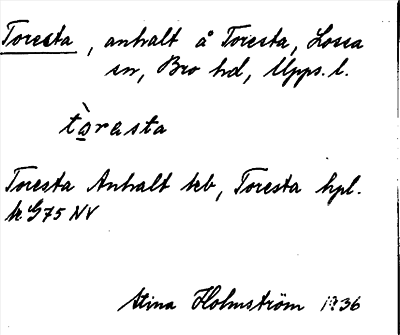 Toresta, anhalt å Toresta, Lossa
sn, Bro hd, Upps. l.
tò̱rasta
Toresta Anhalt kb, Toresta hpl.
k G75 NV
Stina Holmström 1936